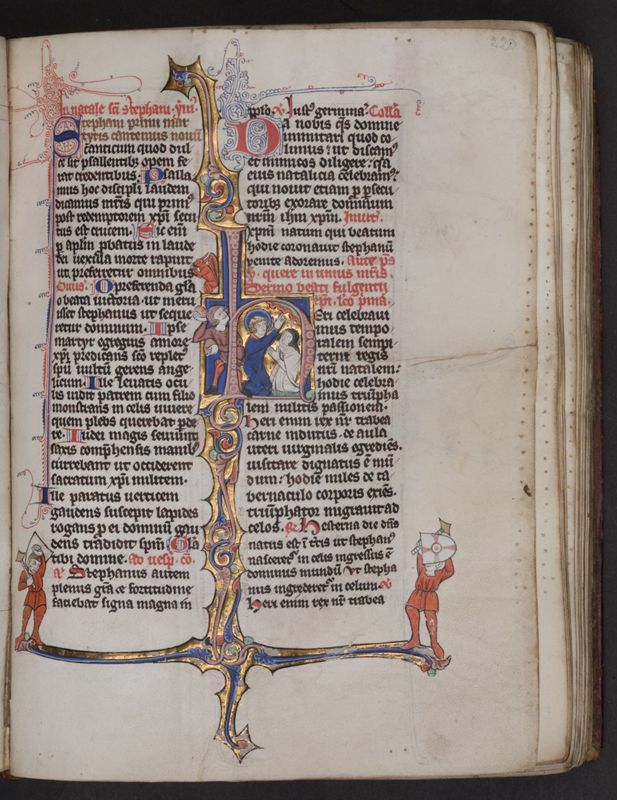 In natale sci stephani ymn
Stephani primi mar
tyris cantemus nouu
canticum quod dul
ce sit psallentibz opem fe
rat credentibus. Psalla
mus hoc discipli laudem
dicamus mris qui prim
post redemptorem xpm secu
tus est crucem. Hic enim
p aplm pbatus in laude
dei uexilla morte rapuit
ut preferretur omnibus
O preferenda gla
o beata uictoria ut meru
isset stephanus ut seque
retur dominum. Ipse
martyr egregius amore
xpi predicans sco repletus
spu uultum gerens ange
licum. Ille leuatis ocu
lis uidit patrem cum filio
monstrans in celis uiuere
quem plebs querebat perde
re. Iudei magis seuiunt
saxis comphensis manibus
currebant ut occiderent
sacratum xpi militem.
Ille paratus uerticem
gaudens suscepit lapides
rogans p ei domnu gau
dens tradidit spm. Gla
tibi domine. Ad uesp.
a Stephanus autem
plenus gra et fortitudine
faciebat signa magna in
pplo. V Iustus germina. Colla
Da nobis qs domine
immitari quod co
limus ut discamus
et inimicos diligere qa
eius natalicia celebramus
qui nouit etiam p psecu
toribz exorare dominum
nrm ihm xpm. Inuit.
xpm natum qui beatum
hodie coronauit stephanu
uenite adoremus.
quere in unius mris.
Sermo beati fulgentii
epi. lco pma.
Heri celebraui
mus tempo
ralem sempi
terni regis
nri natalem:
hodie celebra
mus triumpha
lem militis passionem.
Heri enim rex nr trabea
carne indutus de aula
uteri uirginalis egrediens
uisitare dignatus e mu
dum: hodie miles de ta
bernaculo corporis exies
triumphator migrauit ad
celos. R Hesterna die dns
natus est i tris ut stephan
nasceretur in celis ingressus e
dominus mundu ut stepha
nus ingrederetur in celum. V
Heri enim rex nr trabea